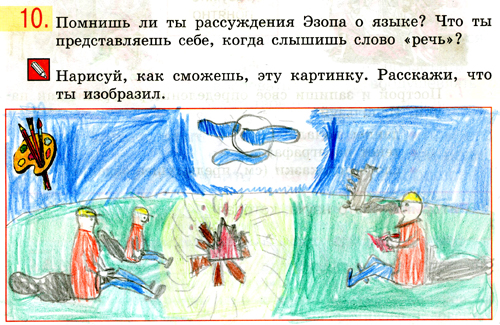 10. Помнишь ли ты рассуждения Эзопа о языке? Что ты
представляешь себе, когда слышишь слово «речь»?
Нарисуй, как сможешь, эту картинку. Расскажи, что
ты изобразил.